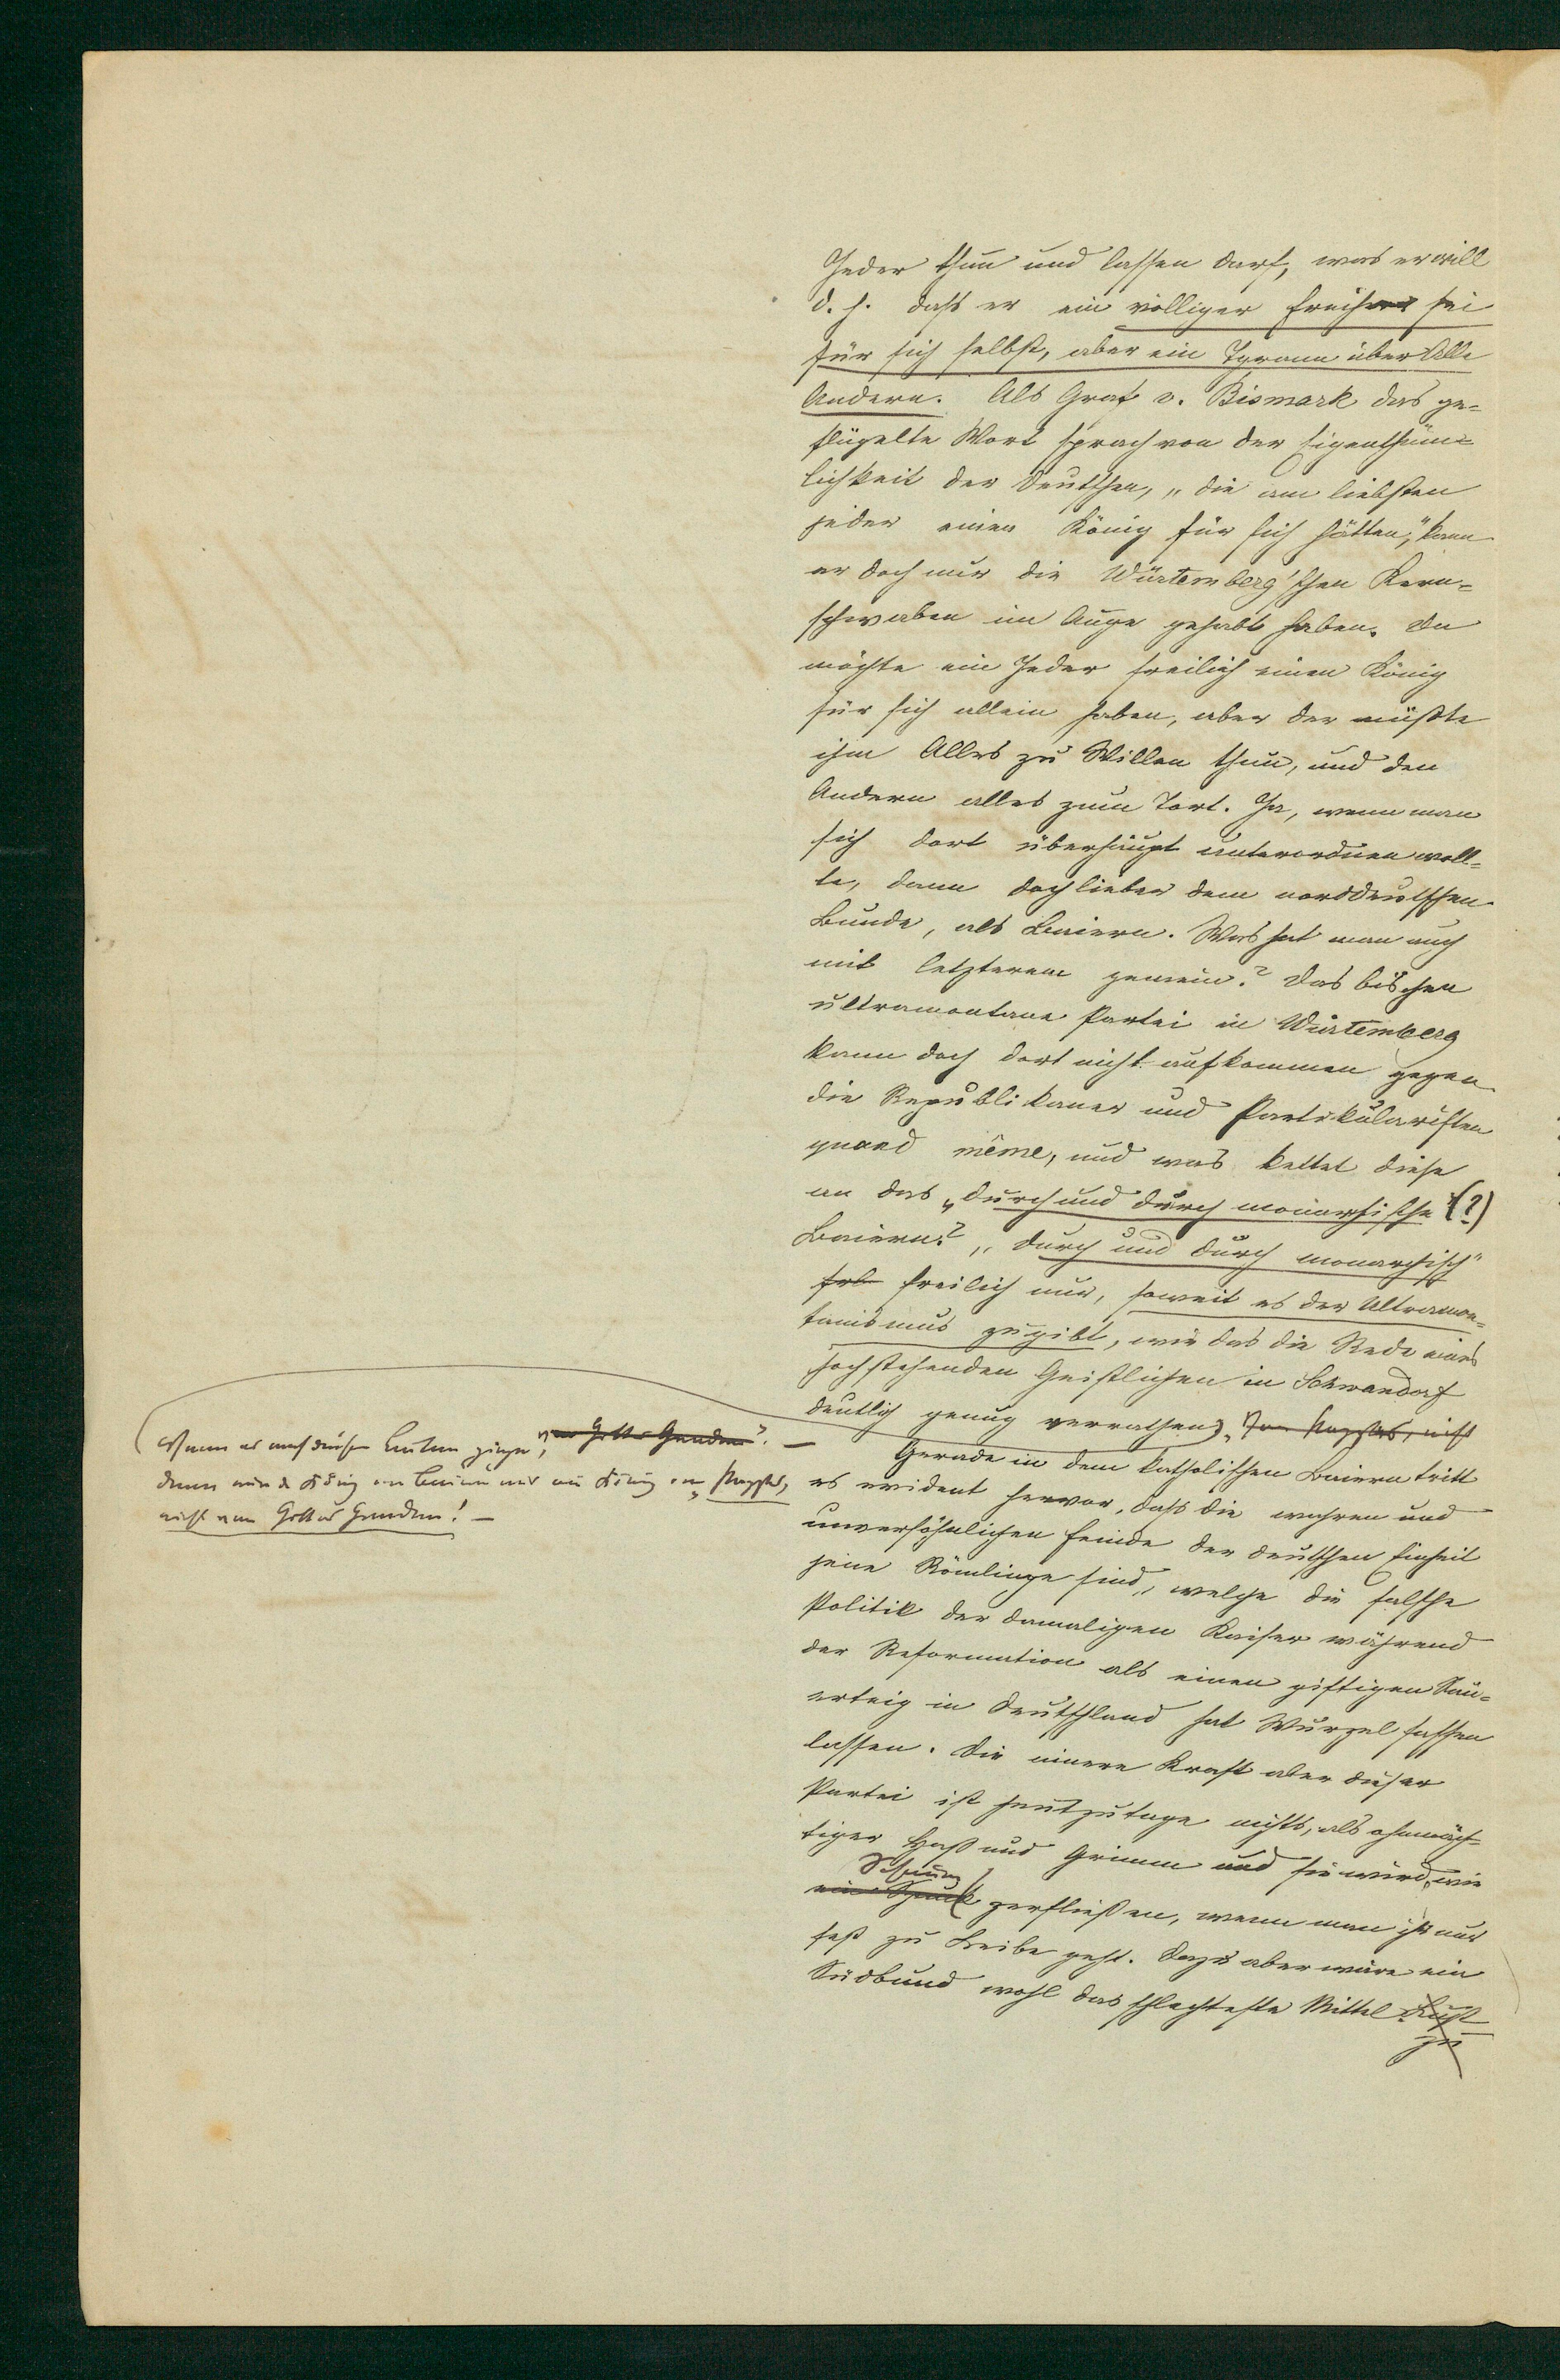 Jeder thun und lassen darf, was er will
d. h. daß er ein völliger Freiherr sei
für sich selbst, aber ein Tyrann über Alle
Andern. Als Graf v. Bismark das ge-
flügelte Wort sprach von der Eigenthüm-
lichkeit der Deutschen, „die am liebsten
jeder einen König für sich hätten," kann
er doch nur die Würtemberg'schen Kern-
schwaben im Auge gehabt haben. Da
möchte ein Jeder freilich einen König
für sich allein haben, aber der müßte
ihm Alles zu Willen thun, und den
Andern alles zum Tort. Ja, wenn man
sich dort überhaupt unterordnen woll-
te, dann doch lieber dem norddeutschen
Bunde, als Baiern. Was hat man auch
mit letzterem gemein? Das bischen
ultramontane Partei in Würtemberg
kann doch dort nicht aufkommen gegen
die Republikaner und Partikularisten
quand même, und was kettet diese
an das „durch und durch monarchische (?)
Baiern? „durch und durch monarchisch"
freilich nur, soweit es der Ultramon-
tanismus zugibt, wie das die Rede eines
hochstehenden Geistlichen in Schwandorf
deutlich genug verrathen. Von Papstes, nicht
Wenn es nach diesen Leuten ginge, von Gottes Gnaden". —
dann wäre der König von Baiern nur ein König von Papstes,
nicht von Gottes Gnaden! —
Gerade in dem katholischen Baiern tritt
es evident hervor, daß die wahren und
unversöhnlichen Feinde der deutschen Einheit
jene Römlinge sind, welche die falsche
Politik der damaligen Kaiser während
der Reformation als einen giftigen Sau-
erteig in Deutschland hat Wurzel fassen
lassen. Die innere Kraft aber dieser
Partei ist heutzutage nichts, als ohnmäch-
tiger Haß und Grimm und sie wird, wie
Schaum
ein Spuk zerfließen, wenn man ihr nur
fest zu Leibe geht. Dazu aber wäre ein
Südbund wohl das schlechteste Mittel
zu